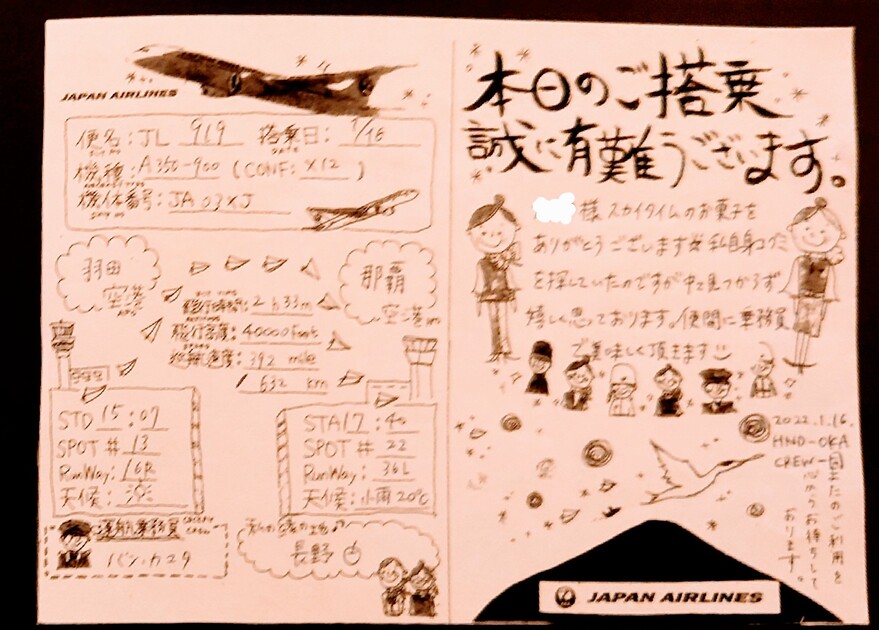 JAPAN AIRLINES
便名:JL 919 搭乗日:1/16
機種:A350-900 (CONF: X12)
機体番号:JA 03XJ
羽田
空港
那覇
空港
飛行時間:2h33m
飛行高度:40000feet
392 mile
/ 632 km
STD 15:07
SPOT # 13
RunWay: 16R
天候:
STA 17:40
SPOT # 22
RunWay: 36L
天候:小雨20℃
運航乗務員
長野
本日のご搭乗
誠に有難うございます。
様 スカイタイムのお菓子を
ありがとうございます 私自身コグミ
を探していたのですが中々見つからず
嬉しく思っております。便間に乗務員
で美味しく頂きます
2022.1.16.
HND-OKA
CREW一同
またのご利用を
心からお待ちして
おります。
JAPAN AIRLINES